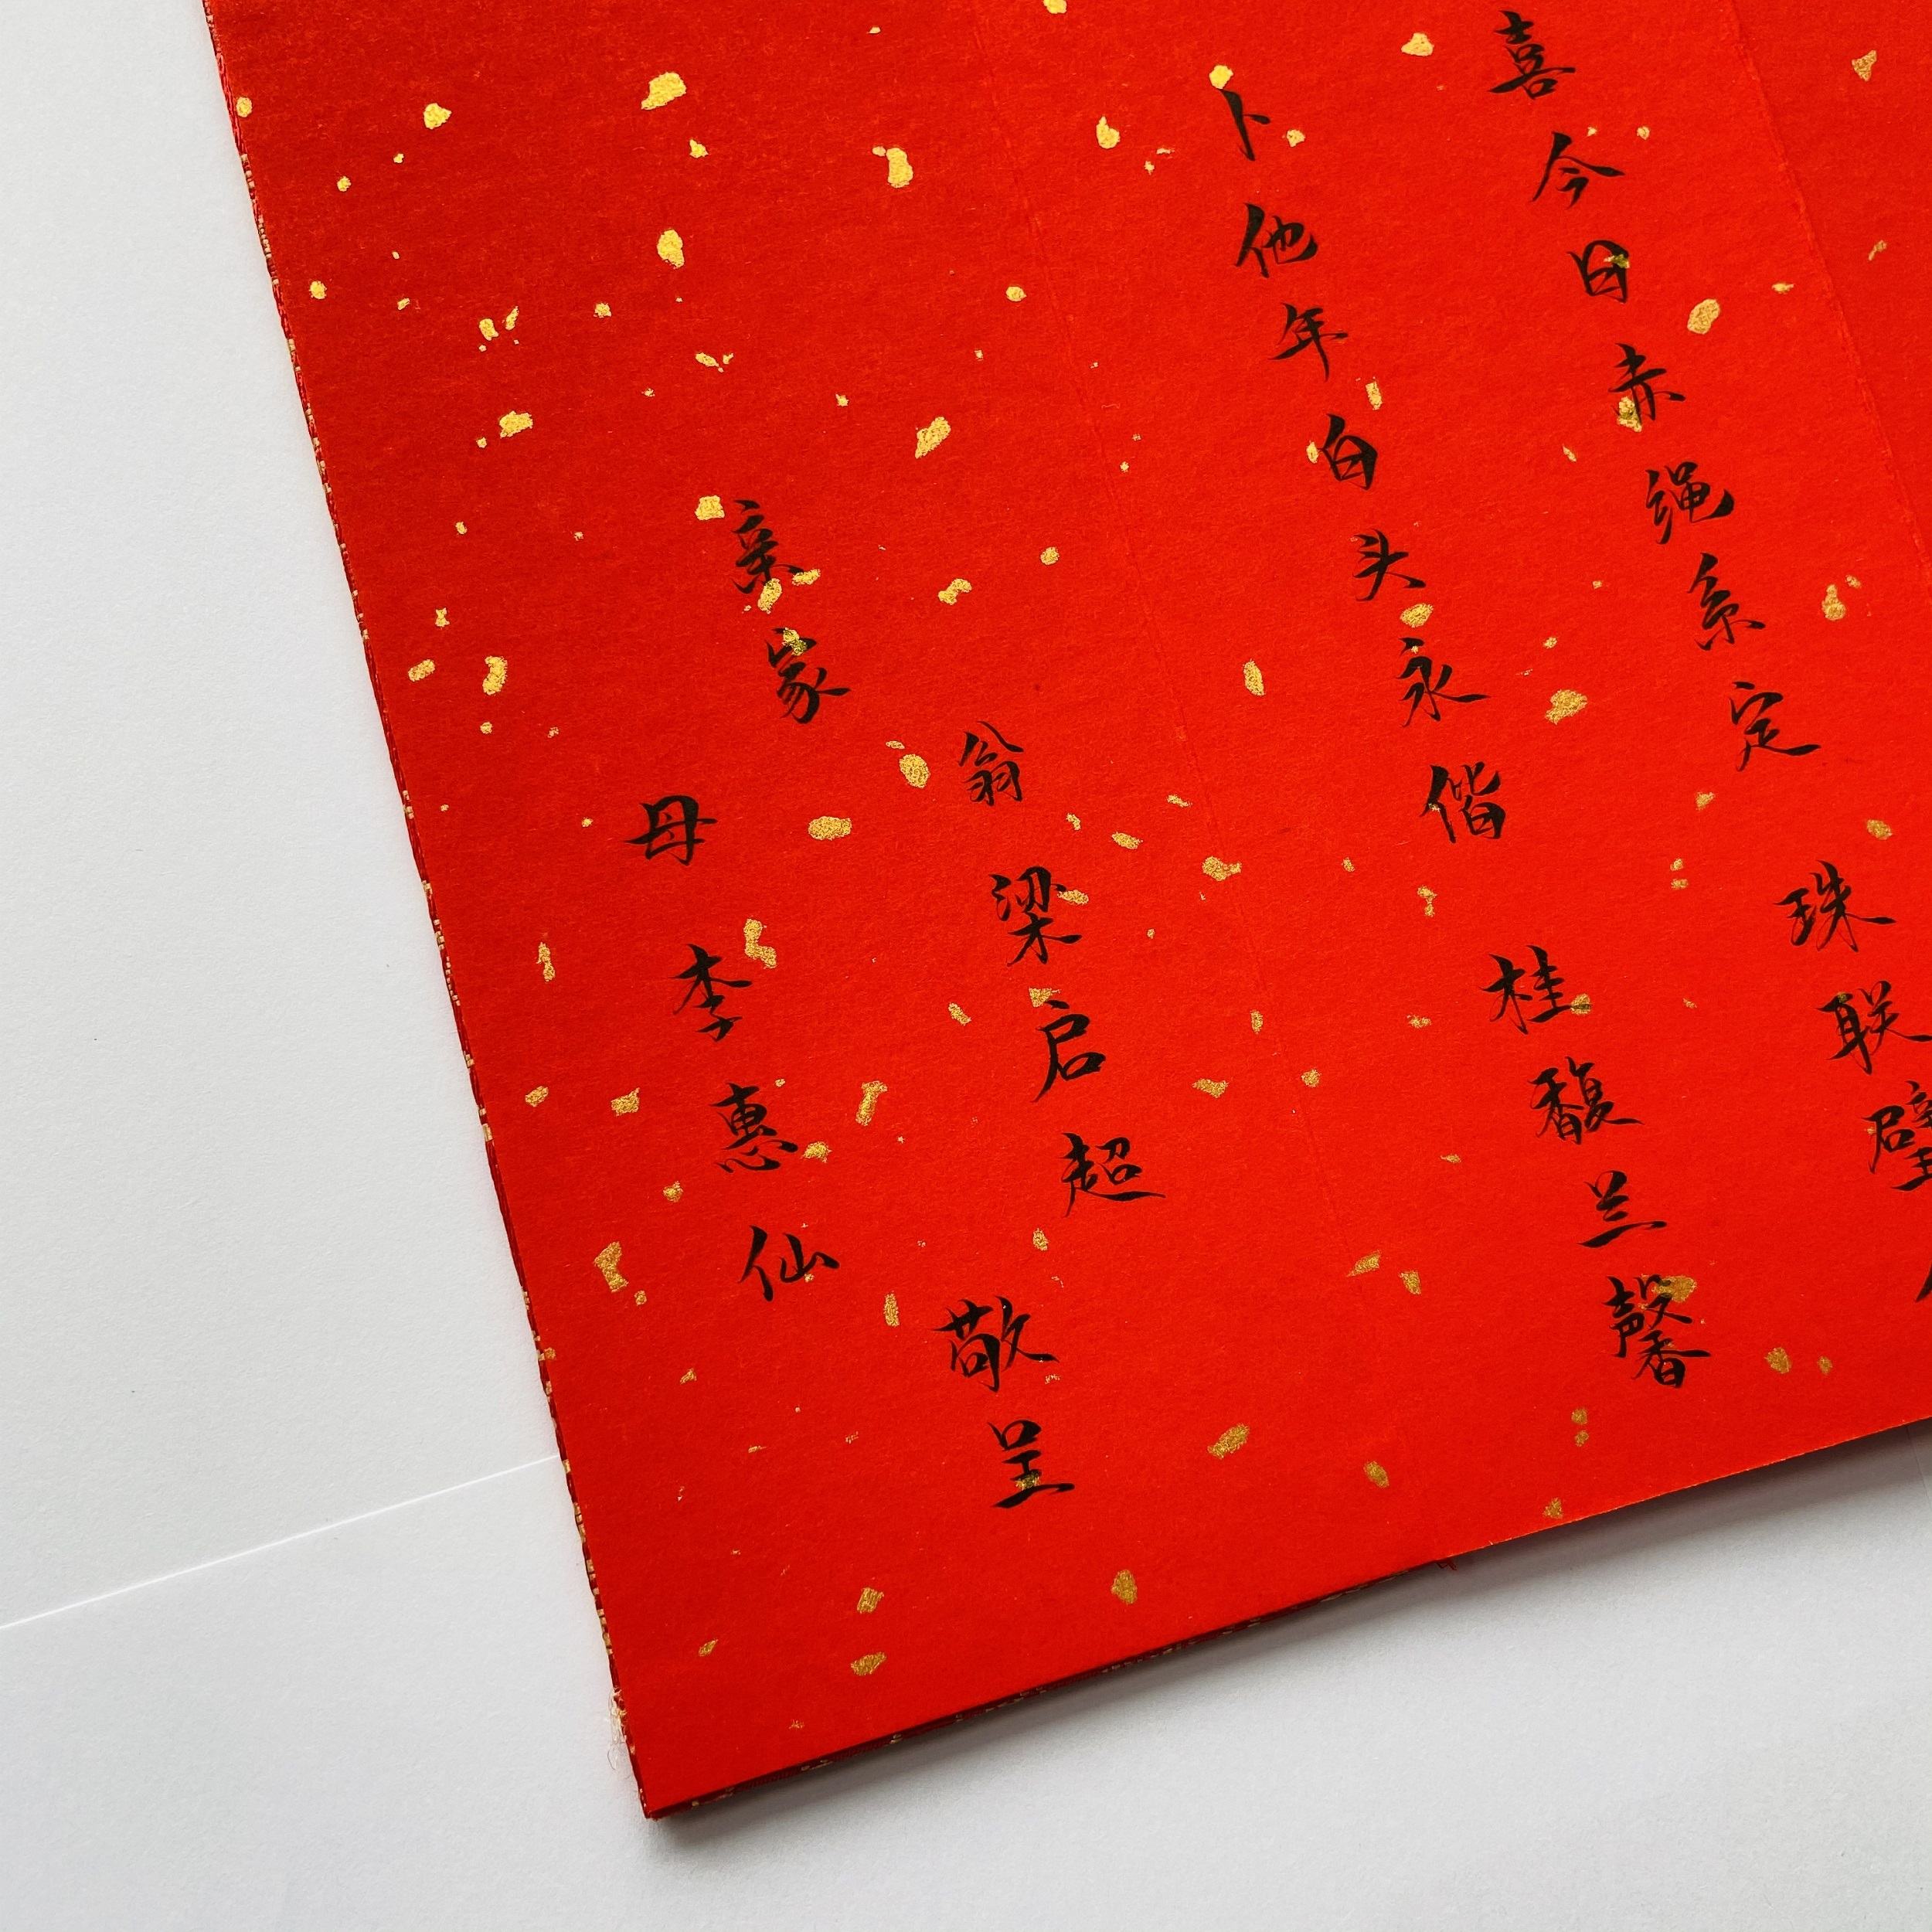 喜今日赤绳系定 珠联璧
卜他年白头永偕 桂馥兰馨
亲家
翁 梁启超
母 李惠仙
敬呈